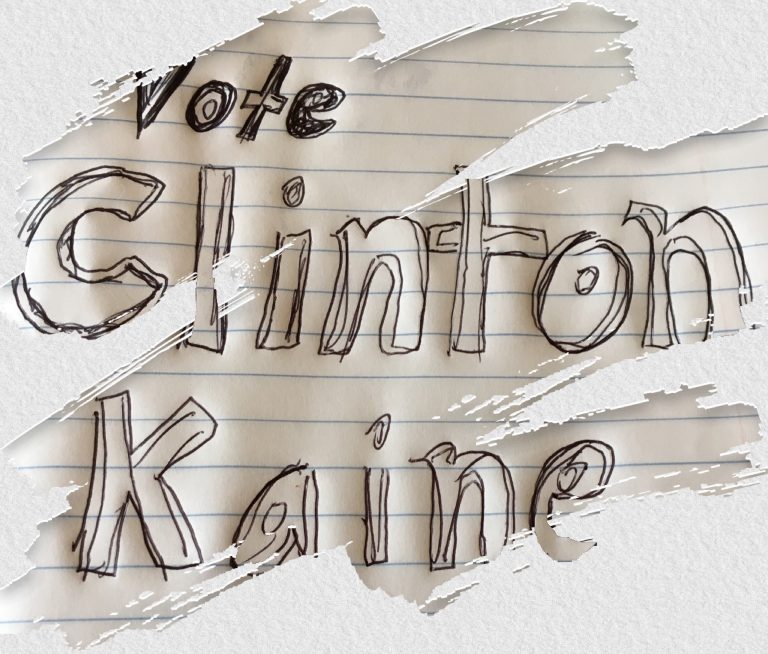 Vote
Clinton
Kaine